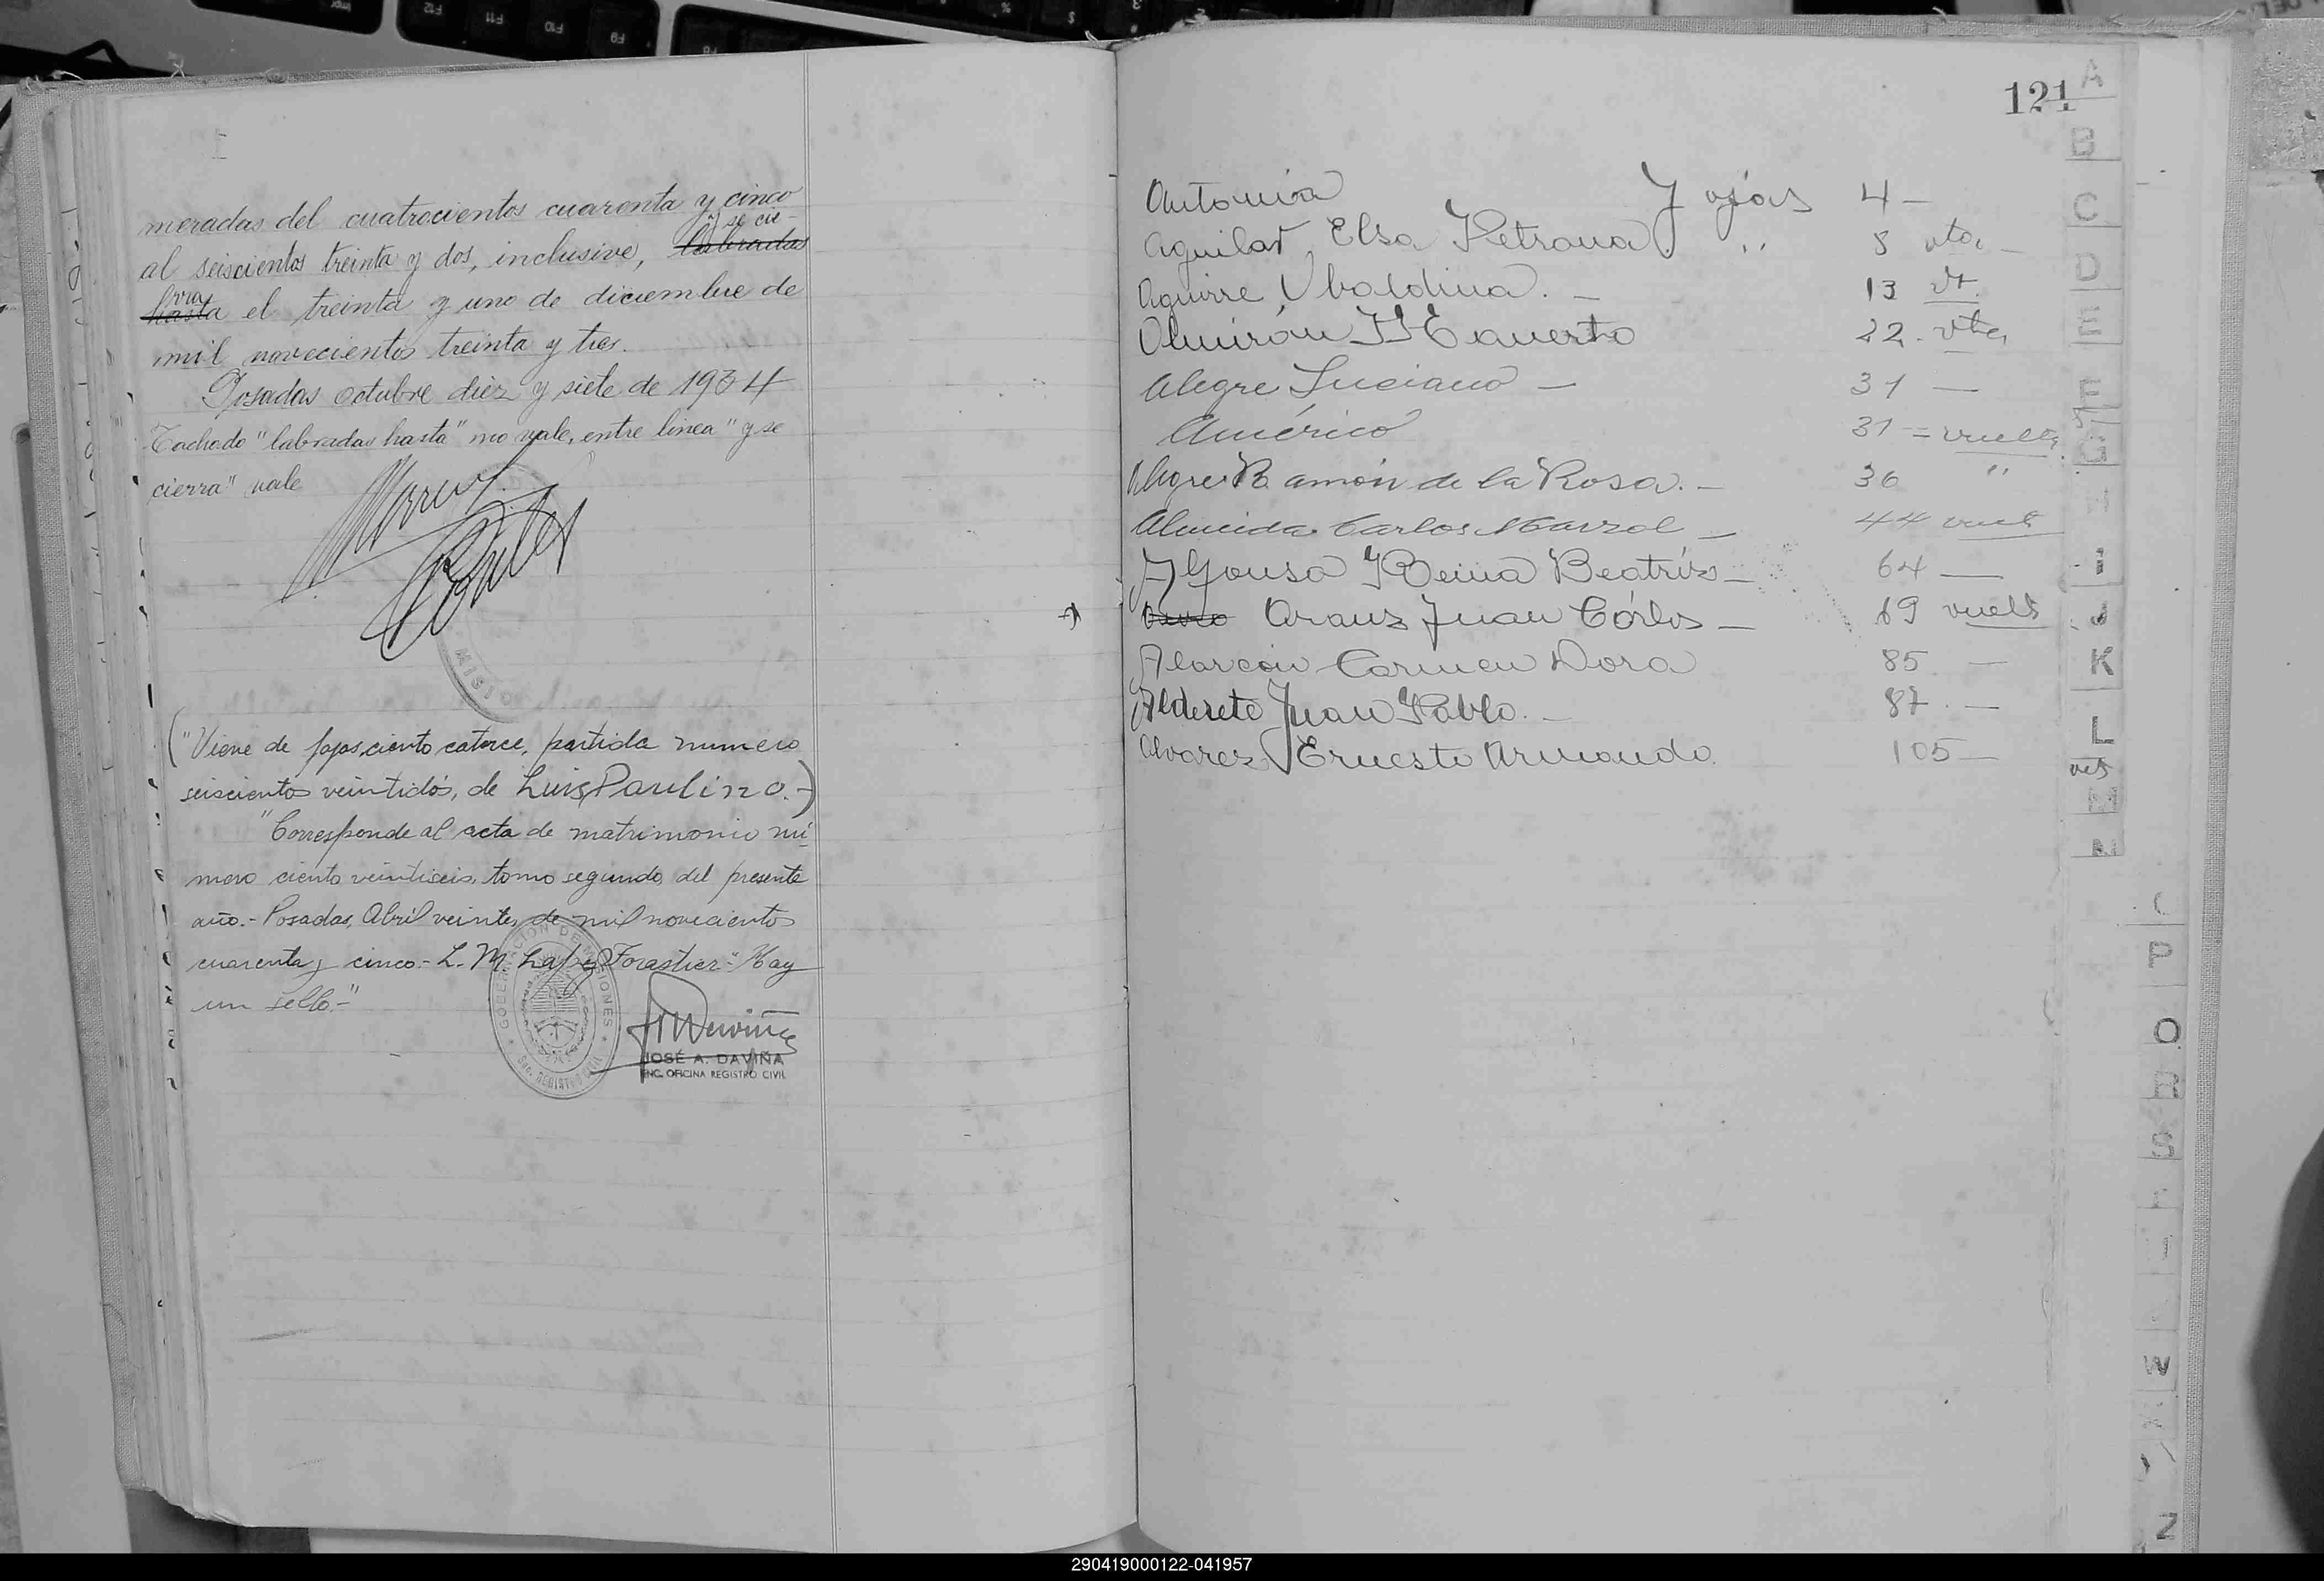 meradas del cuatrocientos cuarenta y cinco
"y se cie-
al seiscientos treinta y dos, inclusive, labradas
rra
hasta el treinta y uno de diciembre de
mil novecientos treinta y tres.
Posadas octubre diez y siete de 1934
Tachado "labradas hasta" no vale, entre linea "y se
cierra" vale
MISIO
("Viene de fojas ciento catorce, partida numero
seiscientos veintidós, de Luis Paulino.-)
"Corresponde al acta de matrimonio nú-
mero ciento veintiseis, tomo segundo, del presente
año.- Posadas, Abril veinte, de mil novecientos
cuarenta y cinco.- L. M. Lopez Forastier-" Hay
un sello.-"
GOBERNACION DE MISIONES
REGISTRO CIVIL
JOSÉ A. DAVIÑA
ENC. OFICINA REGISTRO CIVIL
121
Antonia Fojas 4 —
Aguilar, Elsa Petrona " 8 vta. —
Aguirre Ubaldina. — 13 vt.
Almirón 22 - vta,
Alegre Luciano — 31 —
Américo 31 = vuelta
Alegre Ramón de la Rosa. — 36 "
Almeida Carlos Marzol — 44 vuelt
Reina Beatriz — 64 —
Arauz Juan Cárlos — 69 vuelt
Alarcón Carmen Dora 85 —
Alderete Juan Pablo. — 87. —
Alvarez Ernesto Armando. 105 —
A
B
C
D
E
F
G
H
I
J
K
L
M
N
P
Q
R
S
W
Z
290419000122-041957